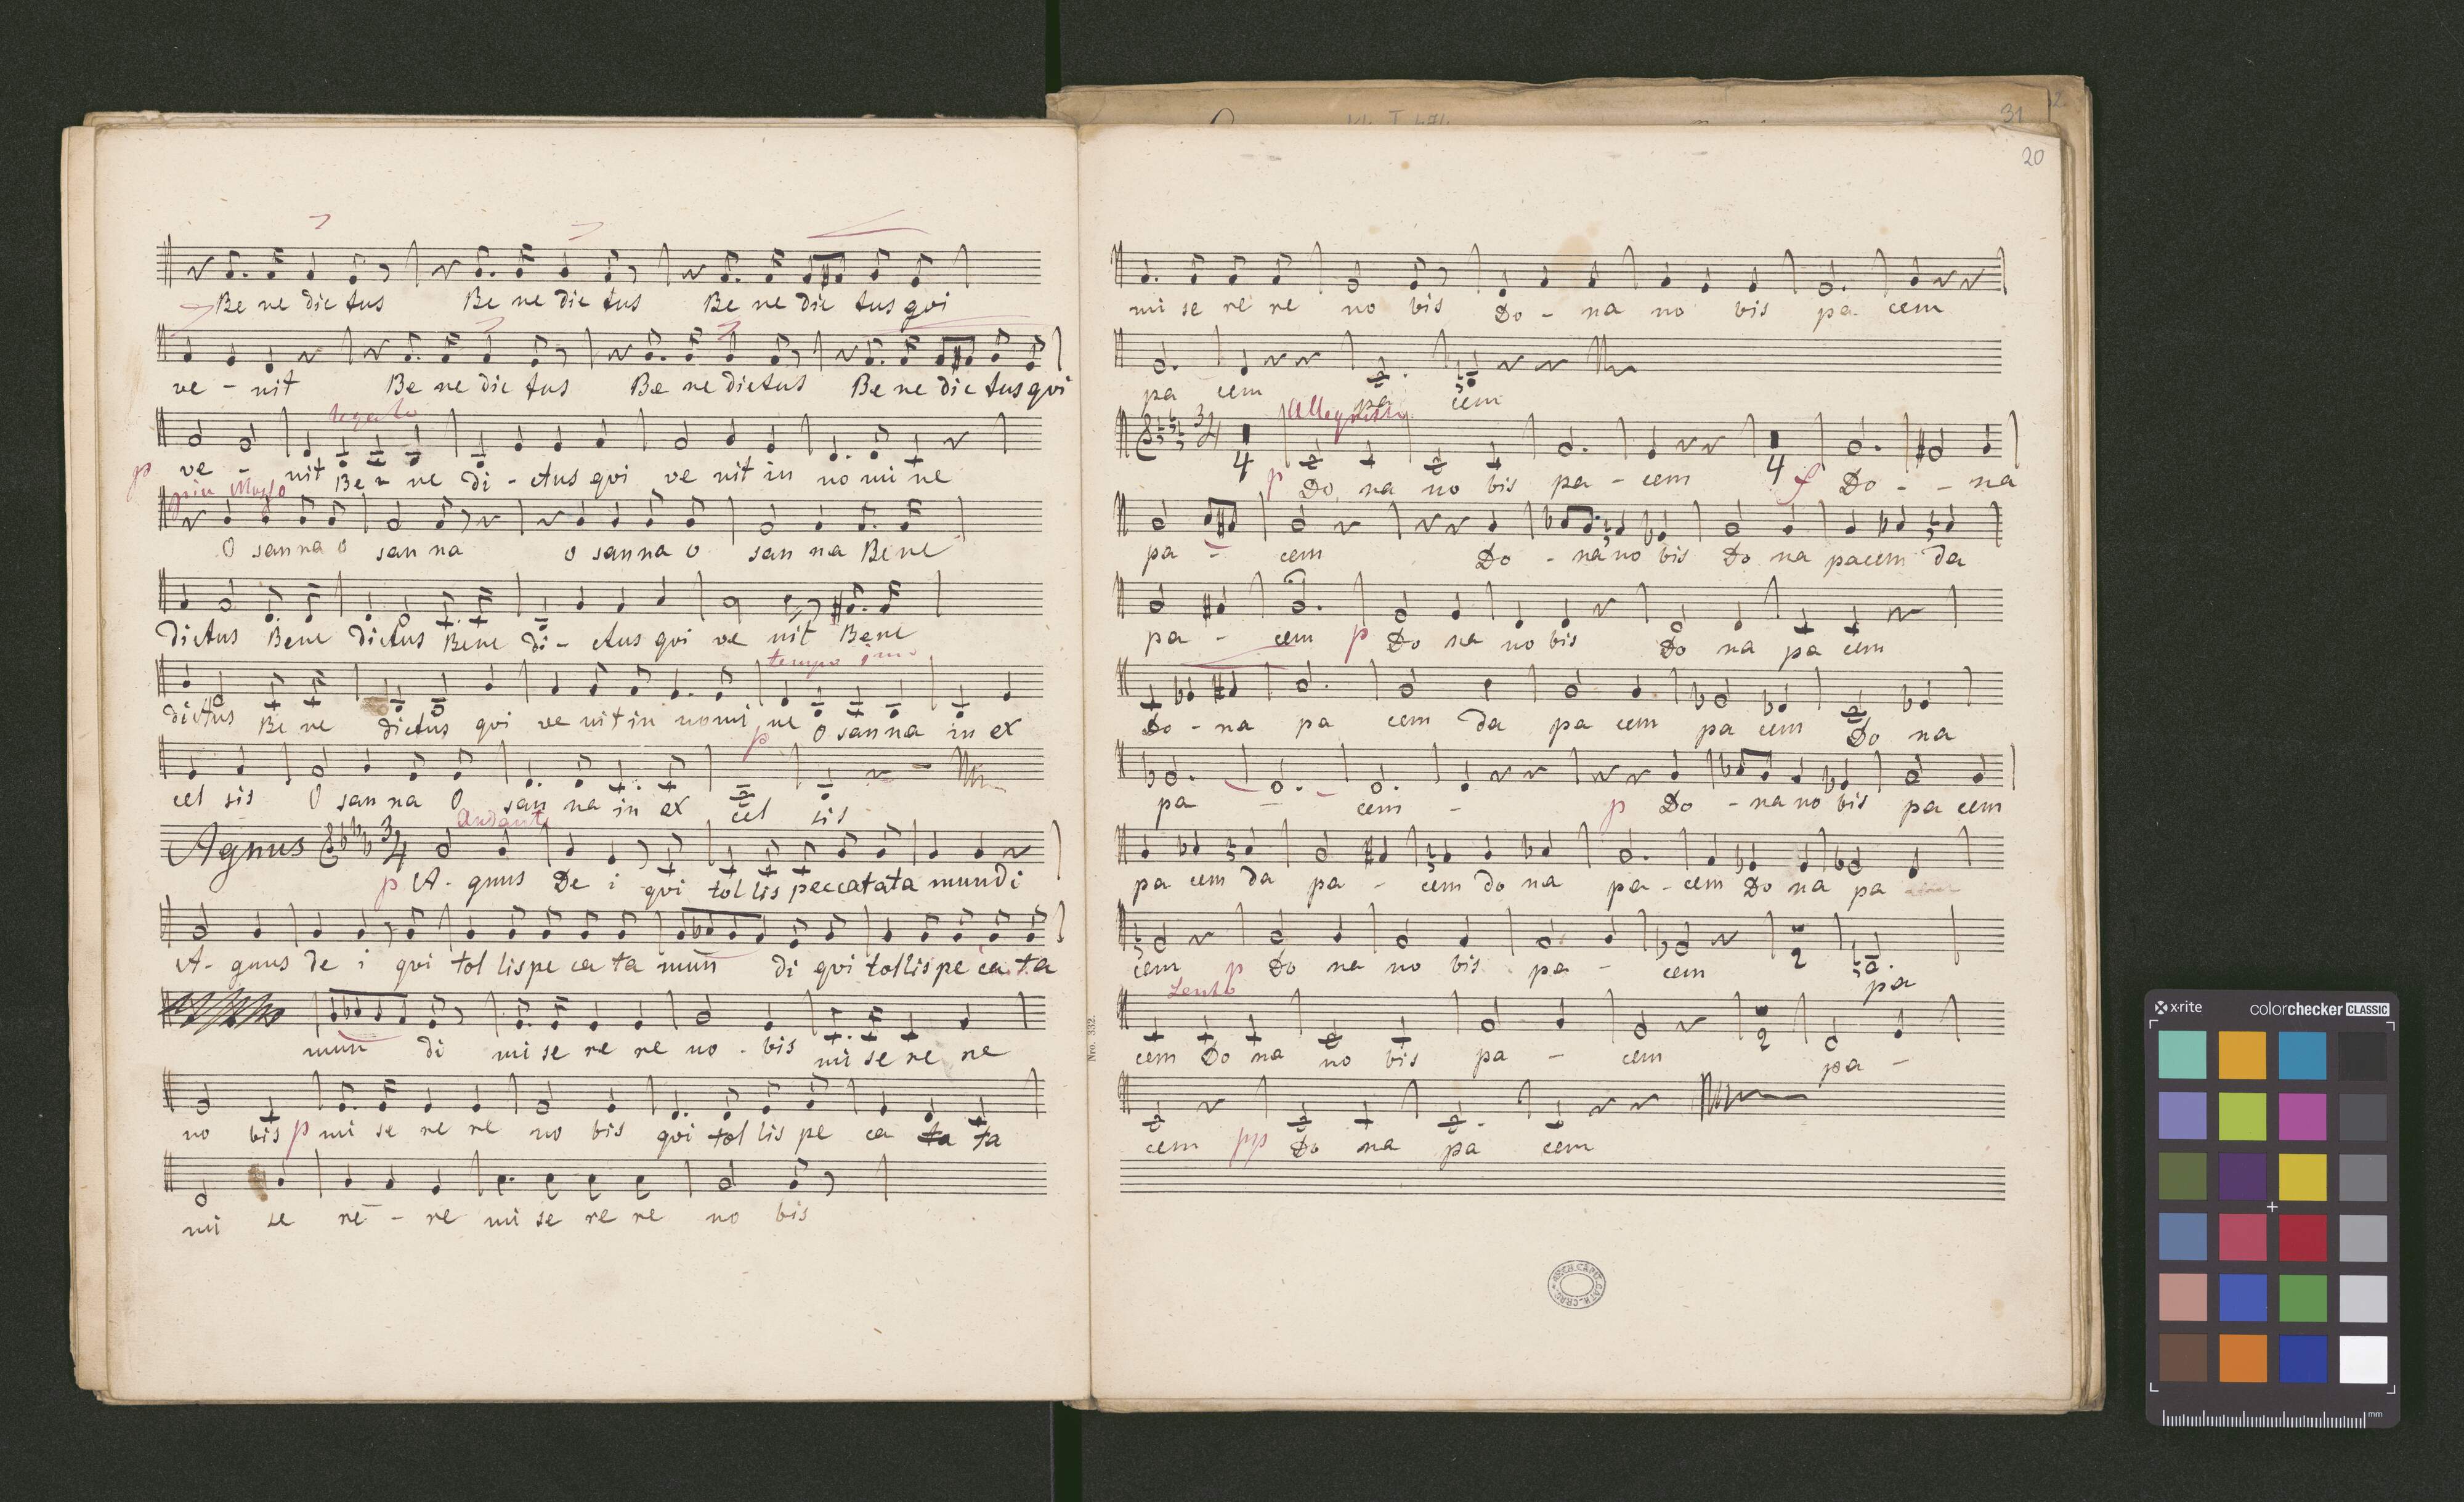 Be ne dic tus Be ne dic tus Be ne dic tus qui
ve - nit Be ne dic tus Be ne dictus Be ne dic tus qui
legato
p ve - nit Be - ne di - ctus qui ve nit in no mi ne
piu Mosso
O san na o san na o san na o san na Bene
dictus Bene dictus Bene di - ctus qui ve nit Bene
tempo imo
dictus Be ne dictus qui ve nit in nomi ne p O san na in ex
cel sis O san na O san na in ex cel sis
Andante
Agnus 3/4
p A - gnus De i qui tol lis peccatata mundi
A - gnus de i qui tol lis pe ca ta mun di qui tol lis pe ca ta
mun di mi se re re no - bis mi se re re
no bis p mi se re re no bis qui tol lis pe ca ta ta
mi se re - re mi se re re no bis
31
20
mi se re re no bis Do - na no bis pa cem
pa cem pa cem
3/4 Allegretto
4 4
p Do na no bis pa - cem f Do - - na
pa - cem Do - na no bis Do na pacem da
pa - cem p Do na no bis Do na pa cem
Do - na pa cem da pa cem pa cem Do na
pa - cem - p Do - na no bis pa cem
pa cem da pa - cem do na pa - cem Do na pa
2
cem p Do na no bis pa - cem pa
Lento
2
cem Do na no bis pa - cem pa -
cem pp Do na pa cem
Nro. 332.
x-rite colorchecker CLASSIC
mm